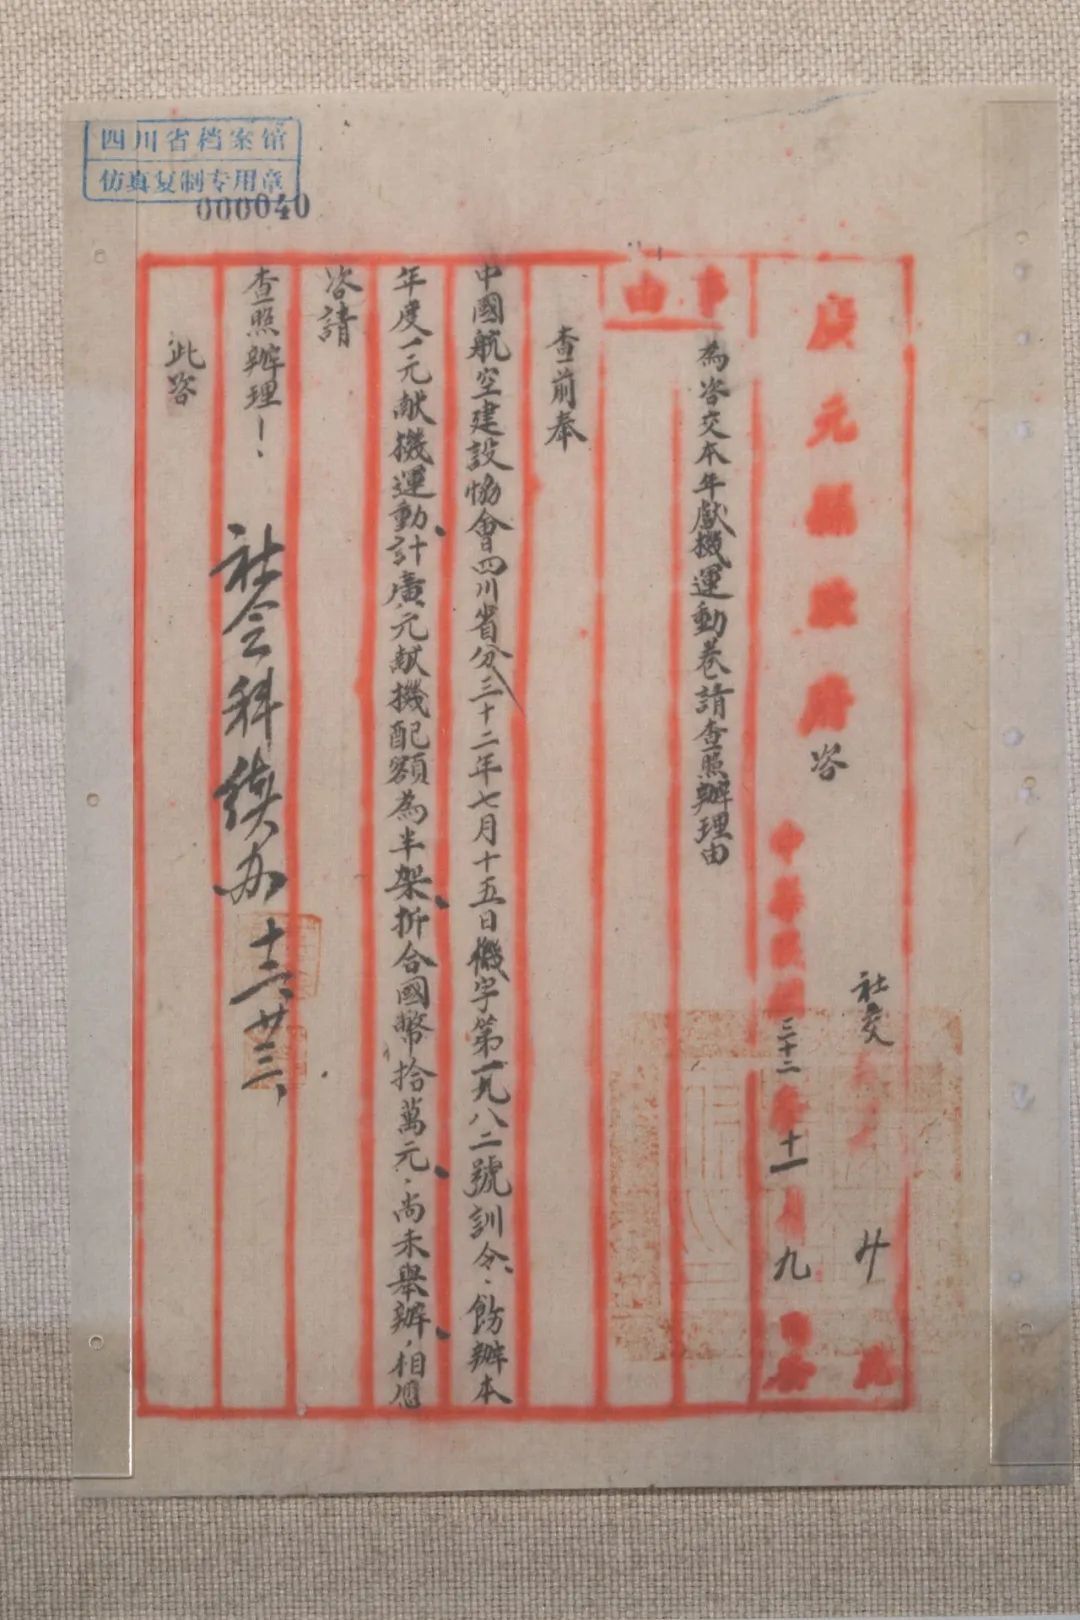 四川省档案馆
仿真复制专用章
000040
廣元縣政府
咨
社交
廿
號
中華民國三十二年十一月九日
事由
為咨交本年獻機運動卷請查照辦理由
查前奉
中國航空建設協會四川省分三十二年七月十五日機字第一九八二號訓令、飭辦本
年度一元献機運動、計廣元献機配額為半架、折合國幣拾萬元、尚未舉辦、相應
咨請
查照辦理！
此咨
社会科续办
十二、廿三、